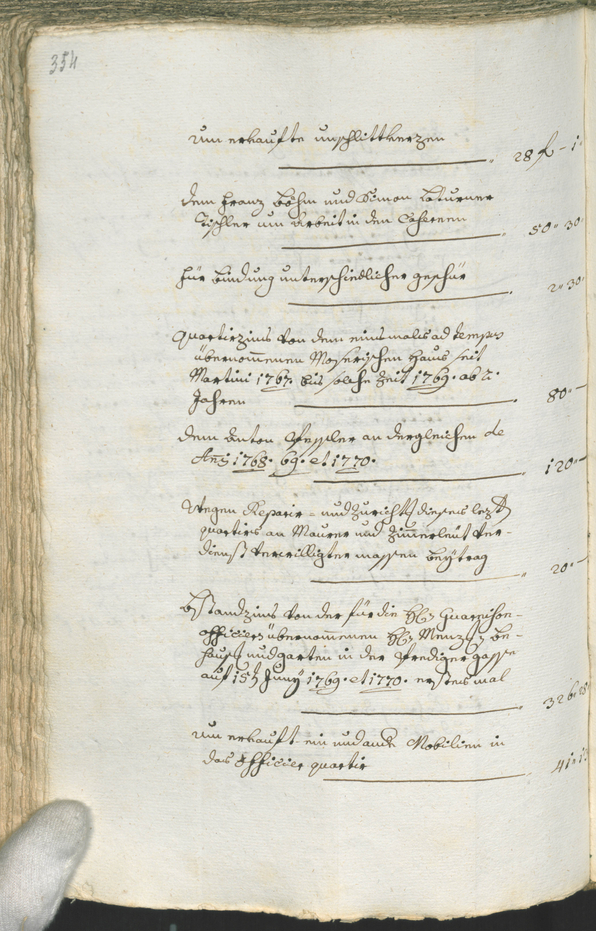 354
um erkaufte unschlittkerzen
28 f - 1
dem Franz Böhm und Simon
Tischler um Arbeit in den Casernen
50 " 30
für bindung unterschiedlicher geschür
2 " 30
Quartirzins von dem einsmals ad tempus
übernommenen Moserischen Haus seit
Martini 1767. bis solche Zeit 1769. ab 2.
Jahren
80 " -
dem Anton an dergleichen de
Anis 1768. 69. et 1770.
120 " -
wegen Reparir- und Zuricht dieses lezt
quartirs an Maurer und Zimerleut ver-
dienst verwilligter massen beytrag
20 " -
bstandzins von der für die H Guarnison-
officiers übernommenen H Menz be-
hausg und garten in der Predigergasse
auf 15t Juny 1769. et 1770. erstes mal
326
um erkauft ein und andre Mobilien in
das officier quartir
41 " 1